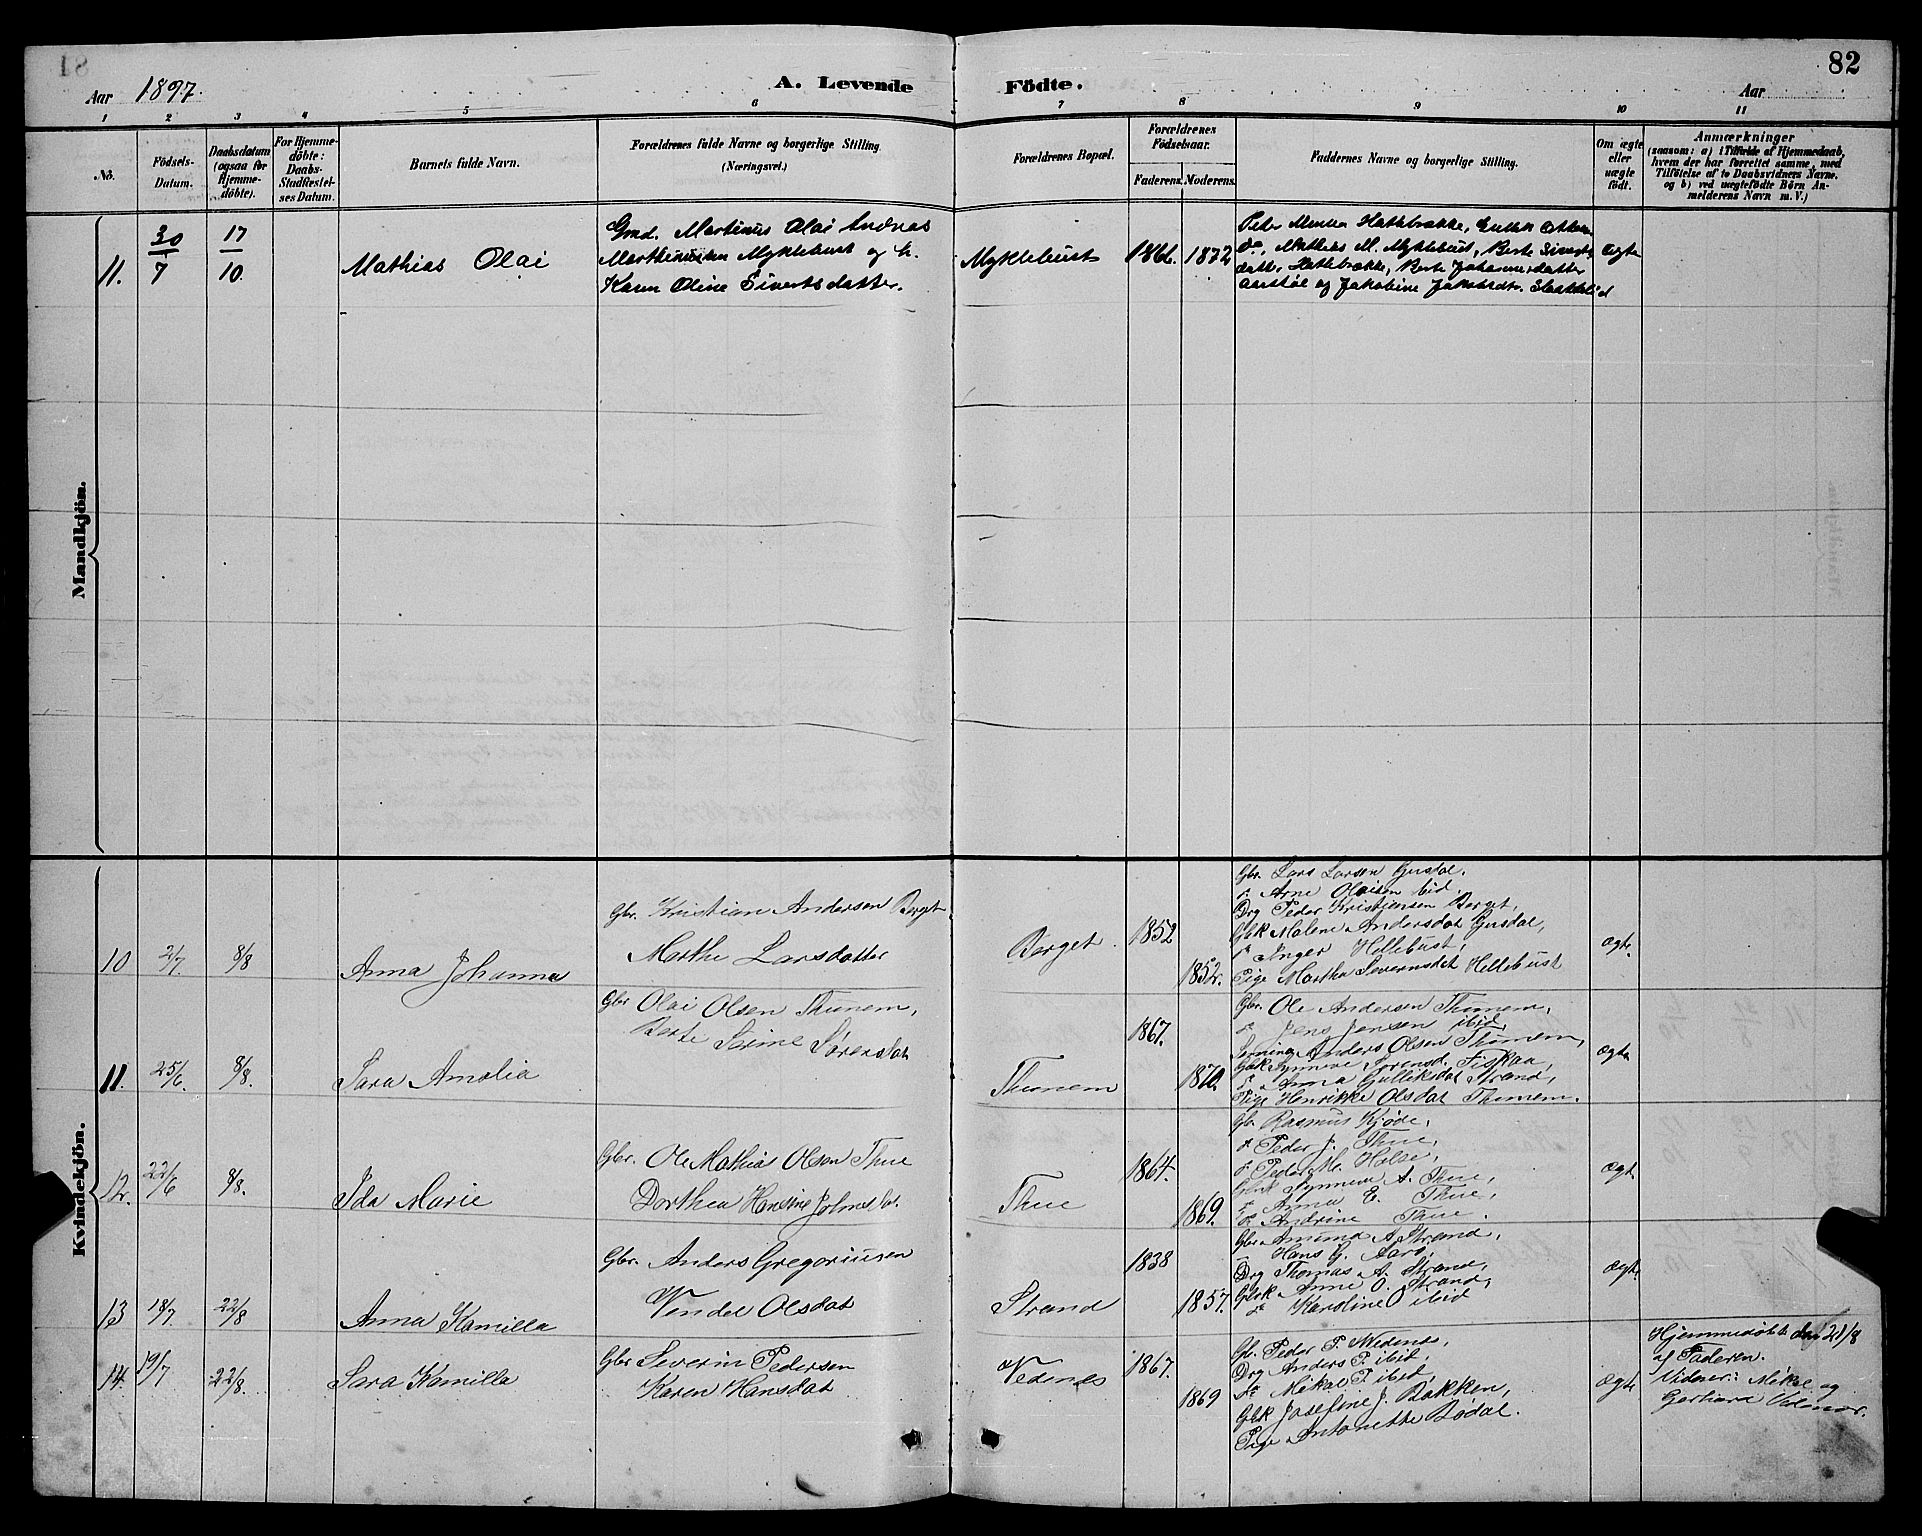 81
82
Aar 1897.
A. Levende Födte.
Aar
1 2 3 4 5 6 7 8 9 10 11
No.
Födsels-Datum.
Daabsdatum (ogsaa for Hjemmedöbte).
For Hjemmedöbte: Daabs-Stadfæstelses Datum.
Barnets fulde Navn.
Forældrenes fulde Navne og borgerlige Stilling (Næringsvei.)
Forældrenes Bopæl.
Forældrenes Födselsaar.
Faderens. Moderens.
Faddernes Navne og borgerlige Stilling.
Om ægte eller uægte födt.
Anmærkninger
(saasom: a) i Tilfælde af Hjemmedaab,
hvem der har forrettet samme, med
Tilföielse af to Daabsvidners Navne.
og b) ved uægtefödte Börn An-
melderens Navn m.V.)
Mandkjön.
11. 30/7 17/10 Mathias Olai
Gmd. Martinus Olai Andreas
Marthinussen Myklebust og h.
Karen Oline Sivertsdatter.
Myklebust 1866. 1872
Peter Hattebrække,
Do., Mathias M. Myklebust, Berte Siverts
datt. Hattebrække, Berte Johannesdatter
Aarstøl og Jakobine Jakobsdtr.
Ægte
Kvindekjön.
10 2/7 8/8 Anna Johanna
Gbr. Kristian Andersen Berget
Marthe Larsdatter
Berget. 1852 1852.
Gbr. Lars Larsen Gusdal.
d. Arne Olaisen ibid.
Drg Peder Kristjensen Berget,
Gbk Malene Andersdat Gusdal,
d. Inger Hellebust,
Pige Martha Severinsdat Hellebust
ægte.
11. 25/6. 8/8. Sara Amalia
Gbr Olai Olsen Thunem,
Berte Serine Sørensdat
Thunem 1867. 1870.
Gbr. Ole Andersen Thunem,
d. Jens Jensen ibid,
Anders Olsen Thunem,
Gbk Synneve Sørensd. Fiskaa,
d. Anna Gulliksdat Strand,
Pige Henrikke Olsdat Thunem.
Ægte
12. 22/6 8/8. Ida Marie
Gbr. Ole Mathias Olsen Thue
Dorthea Hansine Johnsdat.
Thue 1864. 1869.
Gb. Rasmus Kjøde,
d. Peder J. Thue,
d. Peder M. Halse,
Gbk Synneve A. Thue,
d. Anna E. Thue,
d. Andrine Thue.
Ægt.
13 18/7 22/8 Anna Kamilla
Gbr. Anders Gregoriusen
Vendel Olsdat
Strand 1838 1857.
Gbr. Amund A. Strand,
Hans G. Aarø,
Drg Thomas A. Strand,
Gbk Anne O. Strand,
d. Karoline O ibid
Ægt.
14. 19/7 22/8. Sara Kamilla
Gbr Severin Pedersen
Karen Hansdat
Vedenes 1867. 1869
Gb. Peder P. Wedenes,
Drg Anders P. ibid,
d. Mikal P. ibid,
Gbk Josefine J. Bakken,
Pige Antonette Bødal.
Ægte
Hjemmedøbt den 21/8
af Faderen.
Vidner: og